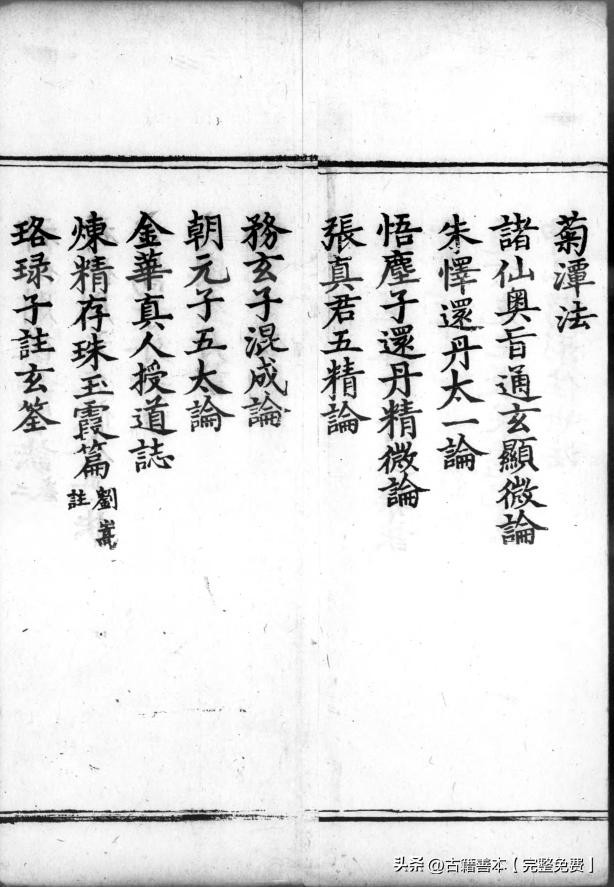 菊潭法
諸仙奧旨通玄顯微論
朱懌還丹太一論
悟塵子還丹精微論
張真君五精論
務玄子混成論
朝元子五太論
金華真人授道誌
煉精存珠玉霞篇 劉嵩註
珞琭子註玄筌
头条 @古籍善本【完整免费】